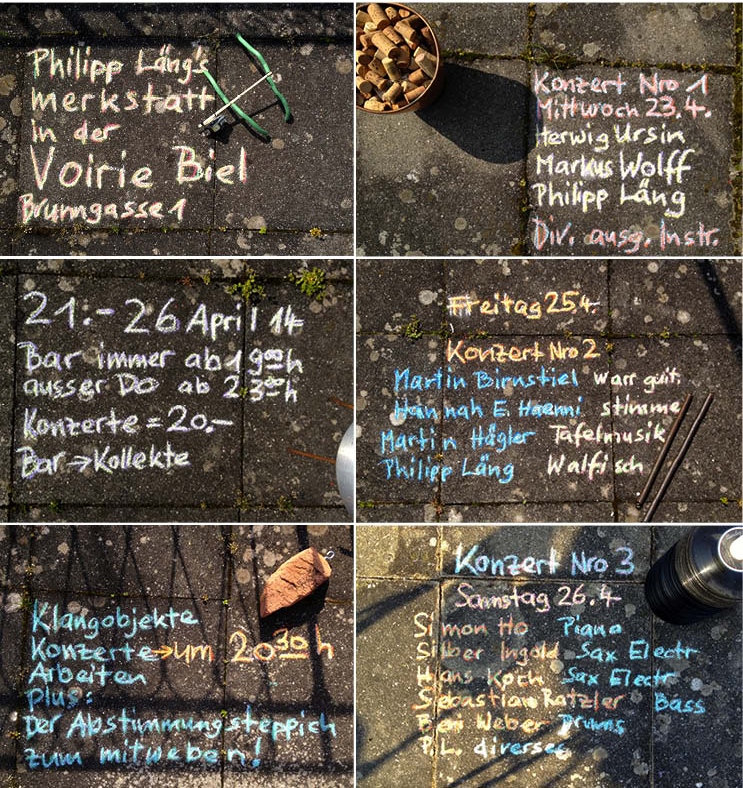 Philipp Läng's
merkstatt
in der
Voirie Biel
Brunngasse 1
Konzert Nro 1
Mittwoch 23.4.
Herwig Ursin
Markus Wolff
Philipp Läng
Div. ausg. Instr.
21.- 26 April 14
Bar immer ab 19 00 h
ausser Do ab 23 00 h
Konzerte = 20.-
Bar → Kollekte
Freitag 25.4.
Konzert Nro 2
Martin Birnstiel warr guit.
Hannah E. Haenni stimme
Martin Hägler Tafelmusik
Philipp Läng Walfisch
Klangobjekte
Konzerte → um 20 30 h
Arbeiten
plus:
Der Abstimmungsteppich
zum mitweben!
Konzert Nro 3
Samstag 26.4.
Simon Ho Piano
Silber Ingold Sax Electr
Hans Koch Sax Electr
Sebastian Rotzler Bass
Beni Weber Drums
P.L. diverses